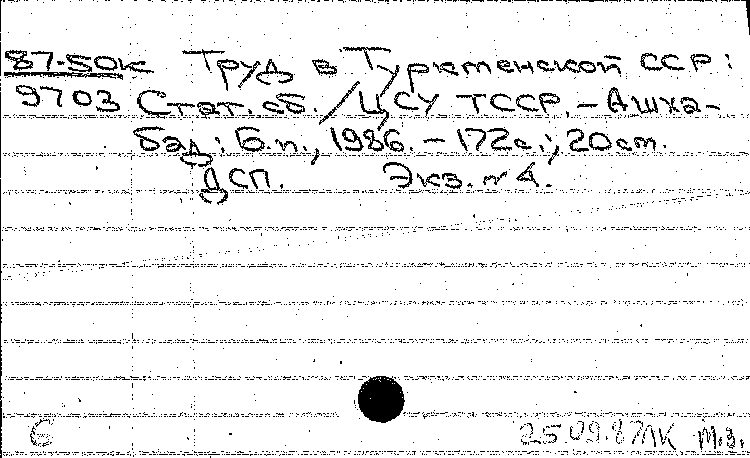 87-50к Труд в Туркменской ССР:
9703 Стат. сб. / ЦСУ ТССР. – Ашха-
бад: Б.п., 1986. – 172с.; 20см.
ДСП. Экз. № 4.
6 25.09.87 ЛК М.З.